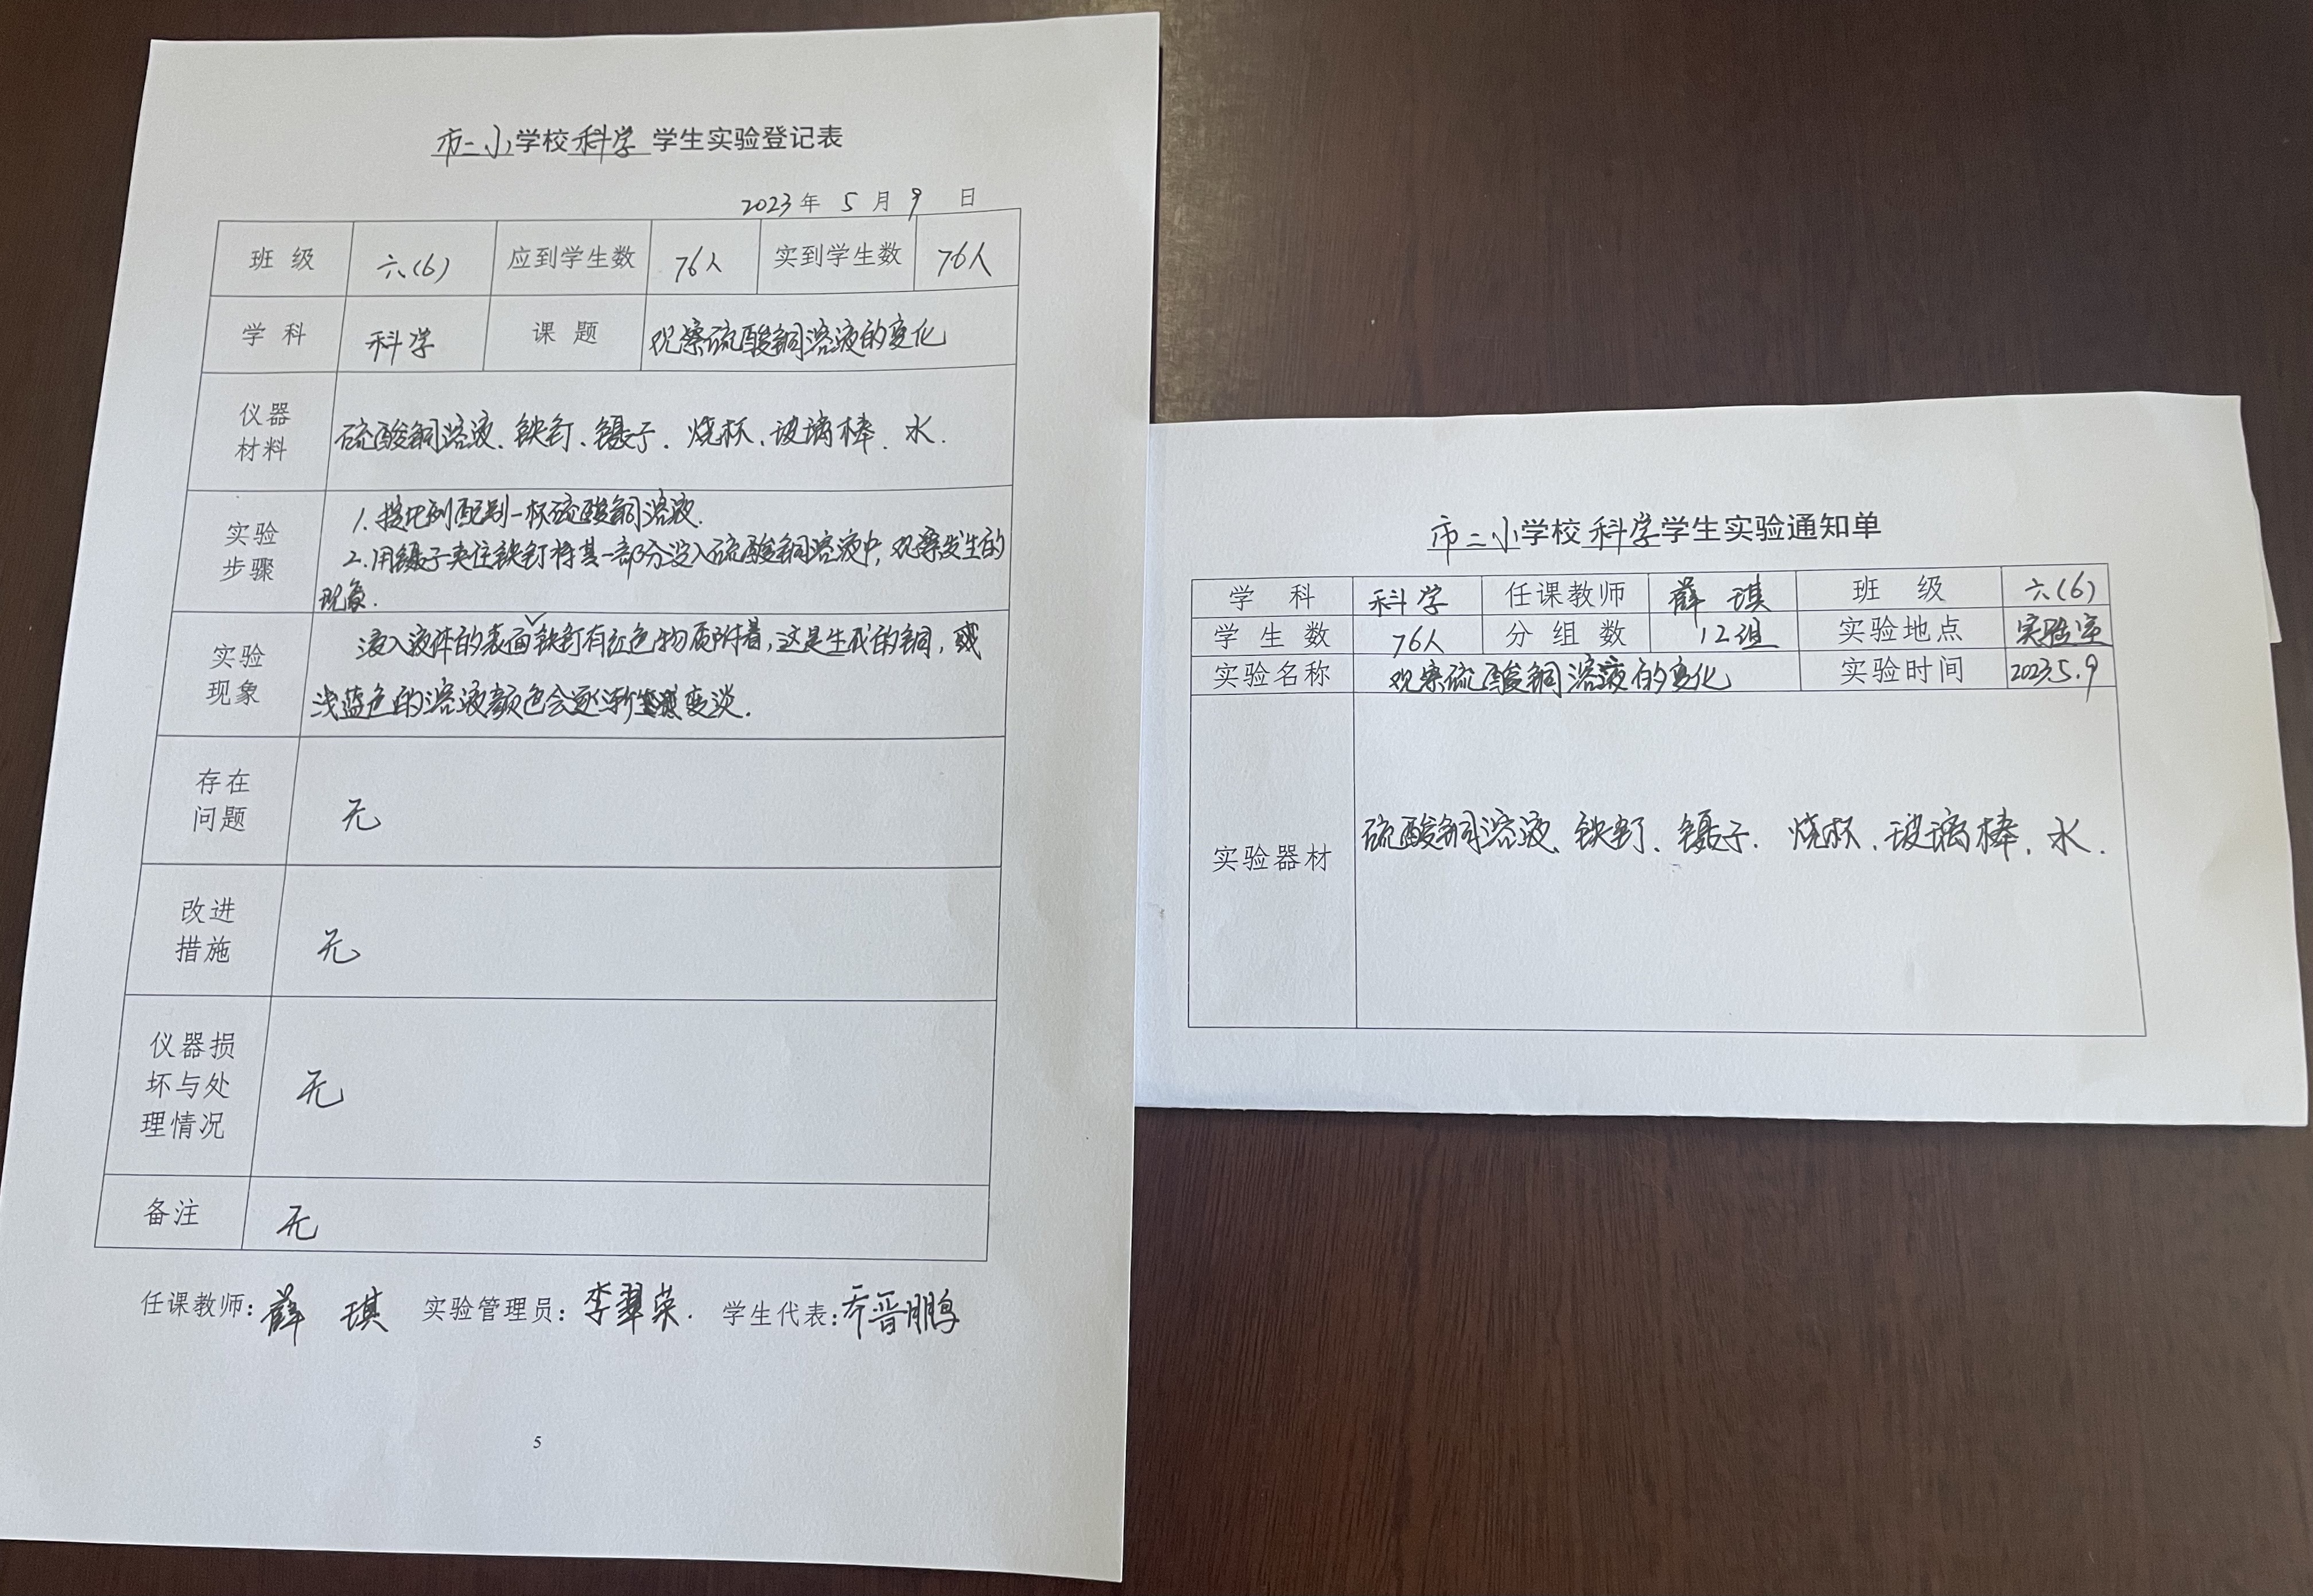 市二小学校科学 学生实验登记表
2023年 5 月 9 日
班 级 六(6) 应到学生数 76人 实到学生数 76人
学 科 科学 课 题 观察硫酸铜溶液的变化
仪器
材料
硫酸铜溶液、铁钉、镊子、烧杯、玻璃棒、水.
实验
步骤
1. 按比例配制一杯硫酸铜溶液.
2. 用镊子夹住铁钉将其一部分浸入硫酸铜溶液中,观察发生的
现象.
实验
现象
浸入液体的表面铁钉有红色物质附着,这是生成的铜,或
浅蓝色的溶液颜色会逐渐变淡.
存在
问题
无
改进
措施
无
仪器损
坏与处
理情况
无
备注 无
任课教师:薛 琪 实验管理员:李翠荣. 学生代表:乔晋鹏
5
市二小学校 科学学生实验通知单
学 科 科学 任课教师 薛 琪 班 级 六(6)
学 生 数 76人 分 组 数 12组 实验地点 实验室
实验名称 观察硫酸铜溶液的变化 实验时间 2023.5.9
实验器材 硫酸铜溶液、铁钉、镊子、烧杯、玻璃棒、水.